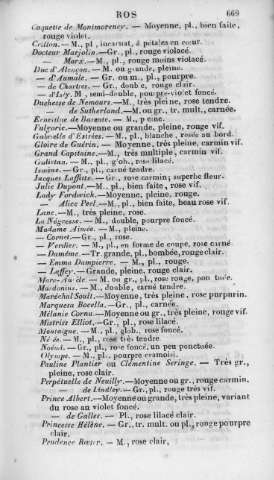 ROS 669
Coquette de Montmorency. — Moyenne, pl., bien faite,
rouge violet.
Crillon. — M., pl., incarnat, à pétales en cœur.
Docteur Marjolin. — Gr., pl., rouge violacé.
— Marx. — M., pl., rouge moins violacé.
Duc d'Alençon. — M. ou grande, pleine.
— d'Aumale. — Gr. ou m., pl., pourpre.
— de Chartres. — Gr., double, rouge clair.
— d'Icy. M., semi-double, pourpre-violet foncé.
Duchesse de Nemours. — M., très pleine, rose tendre.
— de Sutherland. — M. ou gr., tr. mult., carnée.
Ernestine de Barente. — M., pleine.
Fulgorie. — Moyenne ou grande, pleine, rouge vif.
Gabrielle d'Estrées. — M., pl., blanche, rosée au bord.
Gloire de Guérin. — Moyenne, très pleine, carmin vif.
Grand Capitaine. — M., très multiple, carmin vif.
Gulistan. — M., pl., glob., rose lilacé.
Ismène. — Gr., pl., carné tendre.
Jacques Laffitte. — Gr., rose carmin; superbe fleur.
Julie Dupont. — M., pl., bien faite, rose vif.
Lady Fordwich. — Moyenne, pleine, rouge.
— Alice Peel. — M., pl., bien faite, beau rose vif.
Lane. — M., très pleine, rose.
La Négresse. — M., double, pourpre foncé.
Madame Aimée. — M., pleine.
— Cornet. — Gr., pl., rose.
— Verdier. — M., pl., en forme de coupe, rose carné
— Damême. — Tr. grande, pl., bombée, rouge clair.
— Emma Dampierre. — M., pl., rouge.
— Laffey. — Grande, pleine, rouge clair.
M. ou gr., pl., rose rouge,
Mardonius. — M., double, carné tendre.
Maréchal Soult. — Moyenne, très pleine, rose purpurin.
Marquesa Bocella. — Gr., pl., carnée.
Mélanie Cornu. — Moyenne ou gr., très pleine, rouge vif.
Mistriss Elliot. — Gr., pl., rose lilacé.
Montaigne. — M., pl., glob., rose foncé.
M., pl., rose très tendre.
Noémi. — Gr., pl., rose foncé, un peu ponctuée.
Olympe. — M., pl., pourpre cramoisi.
Pauline Plantier ou Clémentine Seringe. — Très gr.,
pleine, rose clair.
Perpétuelle de Neuilly. — Moyenne ou gr., rouge carmin.
— de Lindley. — Gr., pl., rouge très vif.
Prince Albert. — Moyenne ou grande, très pleine, variant
du rose au violet foncé.
— de Galles. — Pl., rose lilacé clair.
Princesse Hélène. — Gr., tr. mult. ou pl., rouge pourpre
clair.
Prudence Rœser. — M., rose clair,